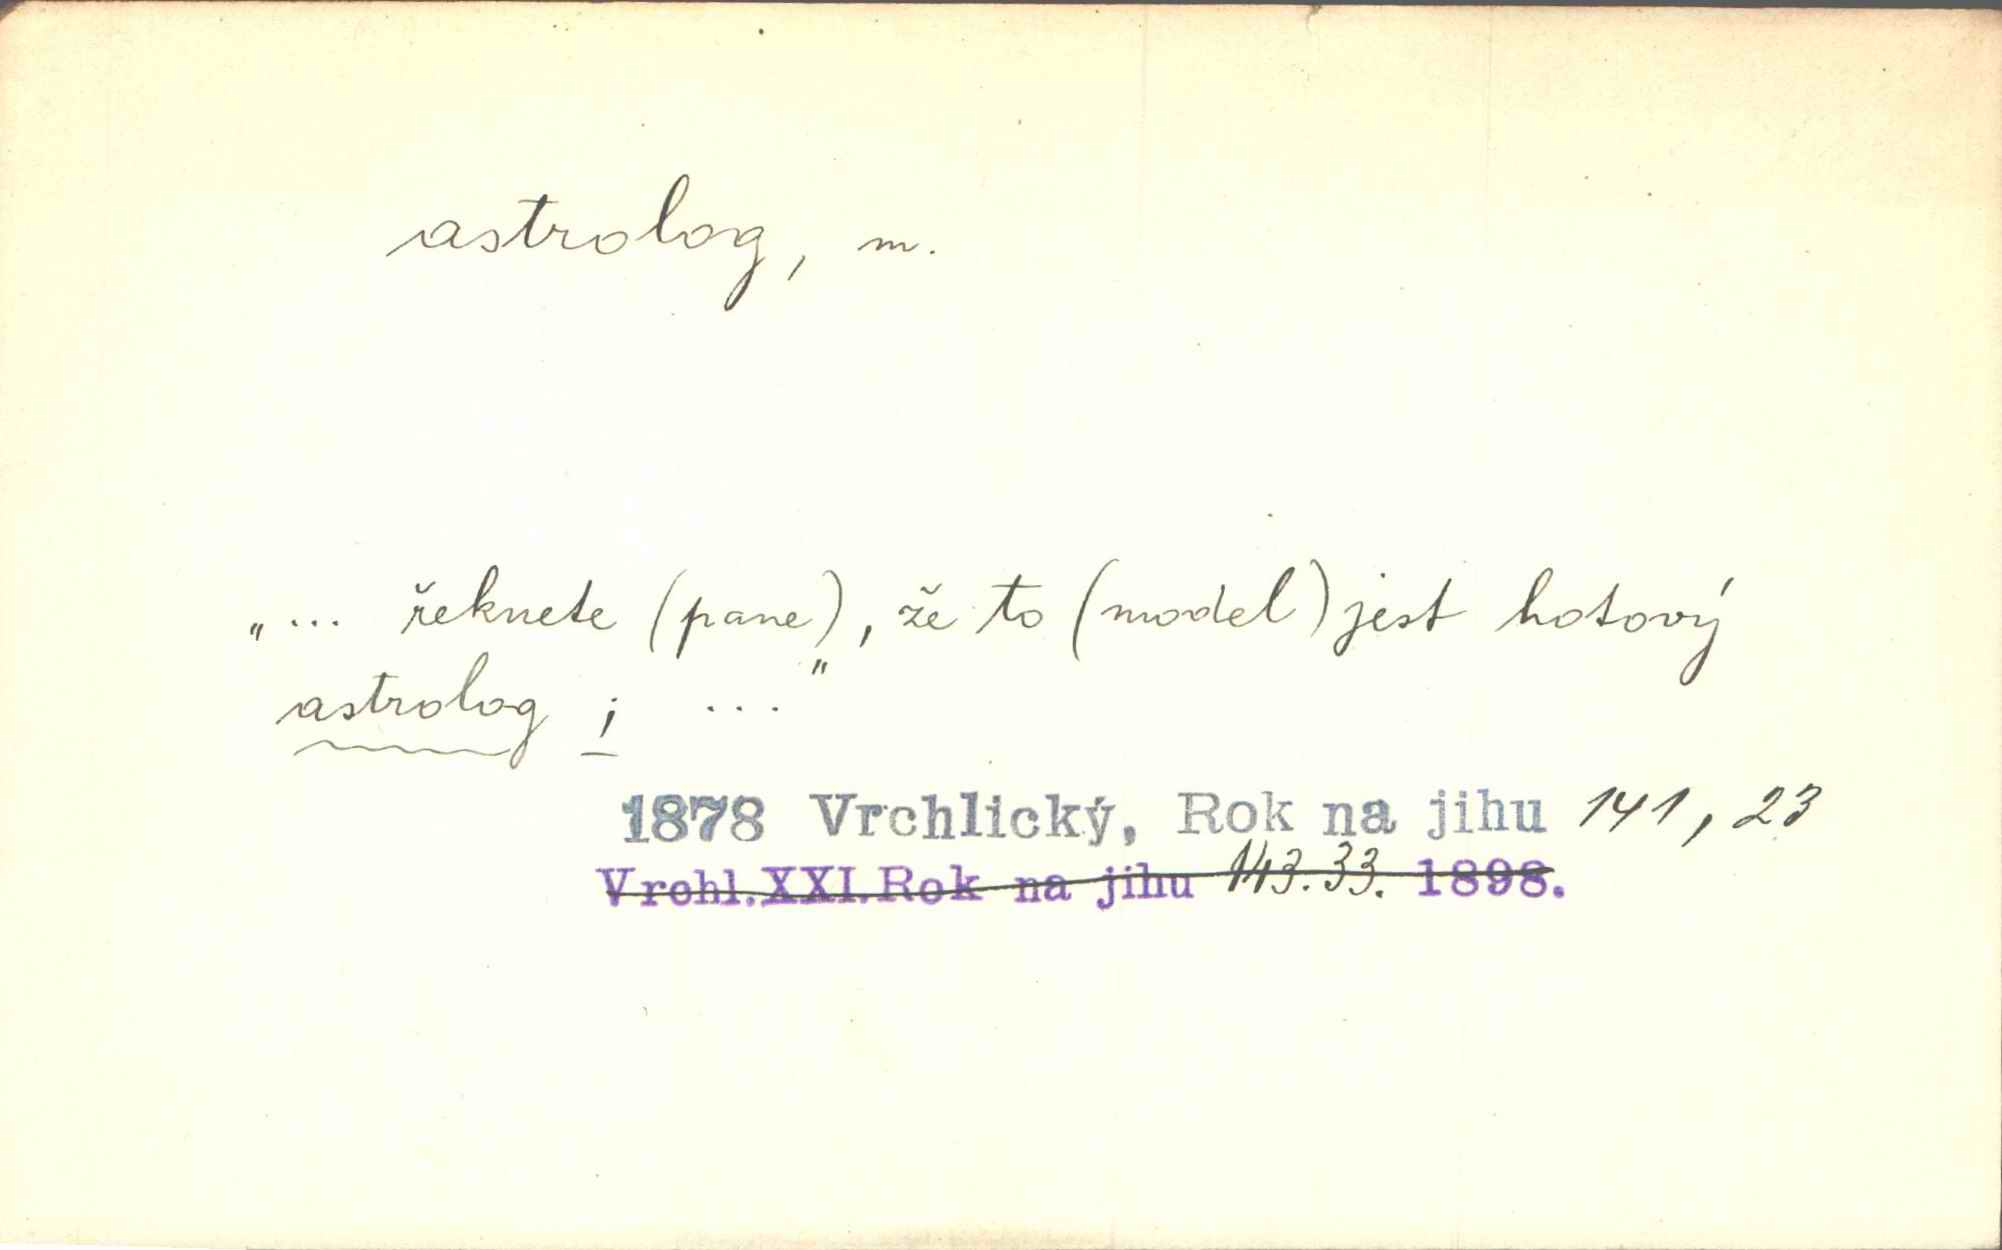 astrolog, m.
„... řeknete (pane), že to (model) jest hotový
astrolog ; ..."
1878 Vrchlický, Rok na jihu 141, 23
Vrchl.XXI.Rok na jihu 143.33. 1898.